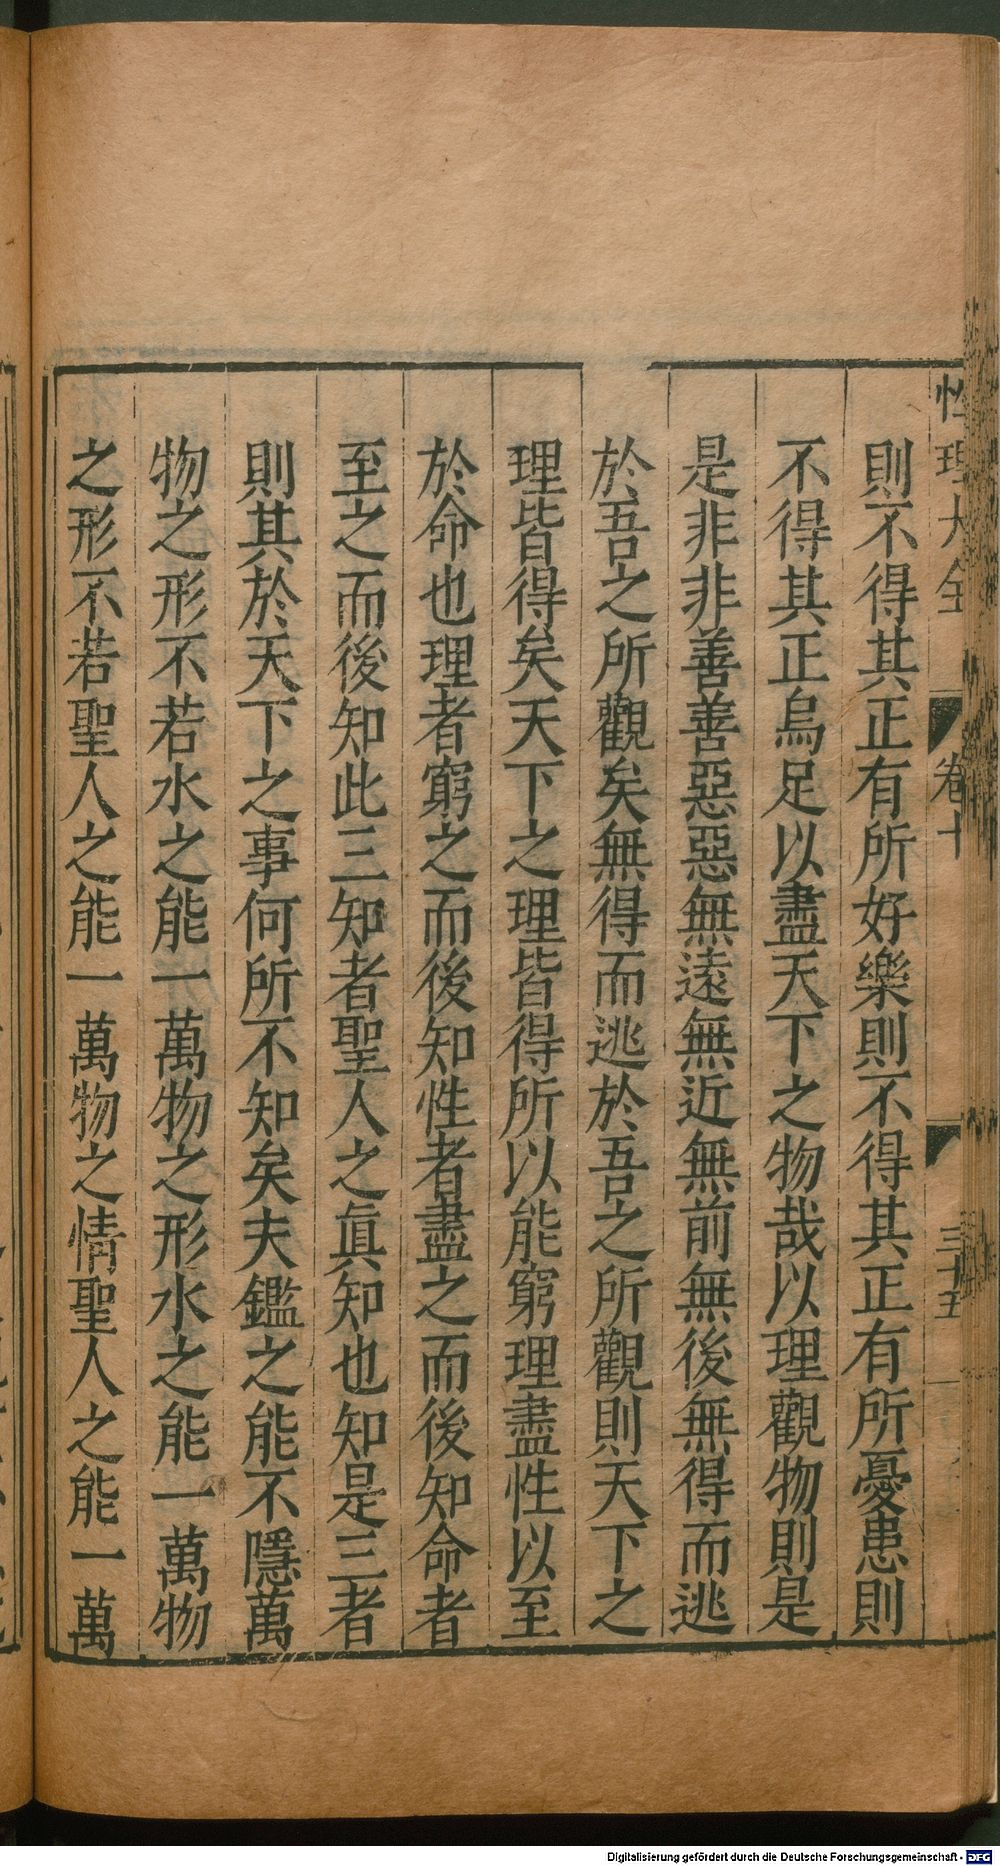 性理大全 卷十 三十五
則不得其正有所好樂則不得其正有所憂患則
不得其正烏足以盡天下之物哉以理觀物則是
是非非善善惡惡無遠無近無前無後無得而逃
於吾之所觀矣無得而逃於吾之所觀則天下之
理皆得矣天下之理皆得所以能窮理盡性以至
於命也理者窮之而後知性者盡之而後知命者
至之而後知此三知者聖人之眞知也知是三者
則其於天下之事何所不知矣夫鑑之能不隱萬
物之形不若水之能一萬物之形水之能一萬物
之形不若聖人之能一萬物之情聖人之能一萬
Digitalisierung gefördert durch die Deutsche Forschungsgemeinschaft - DFG